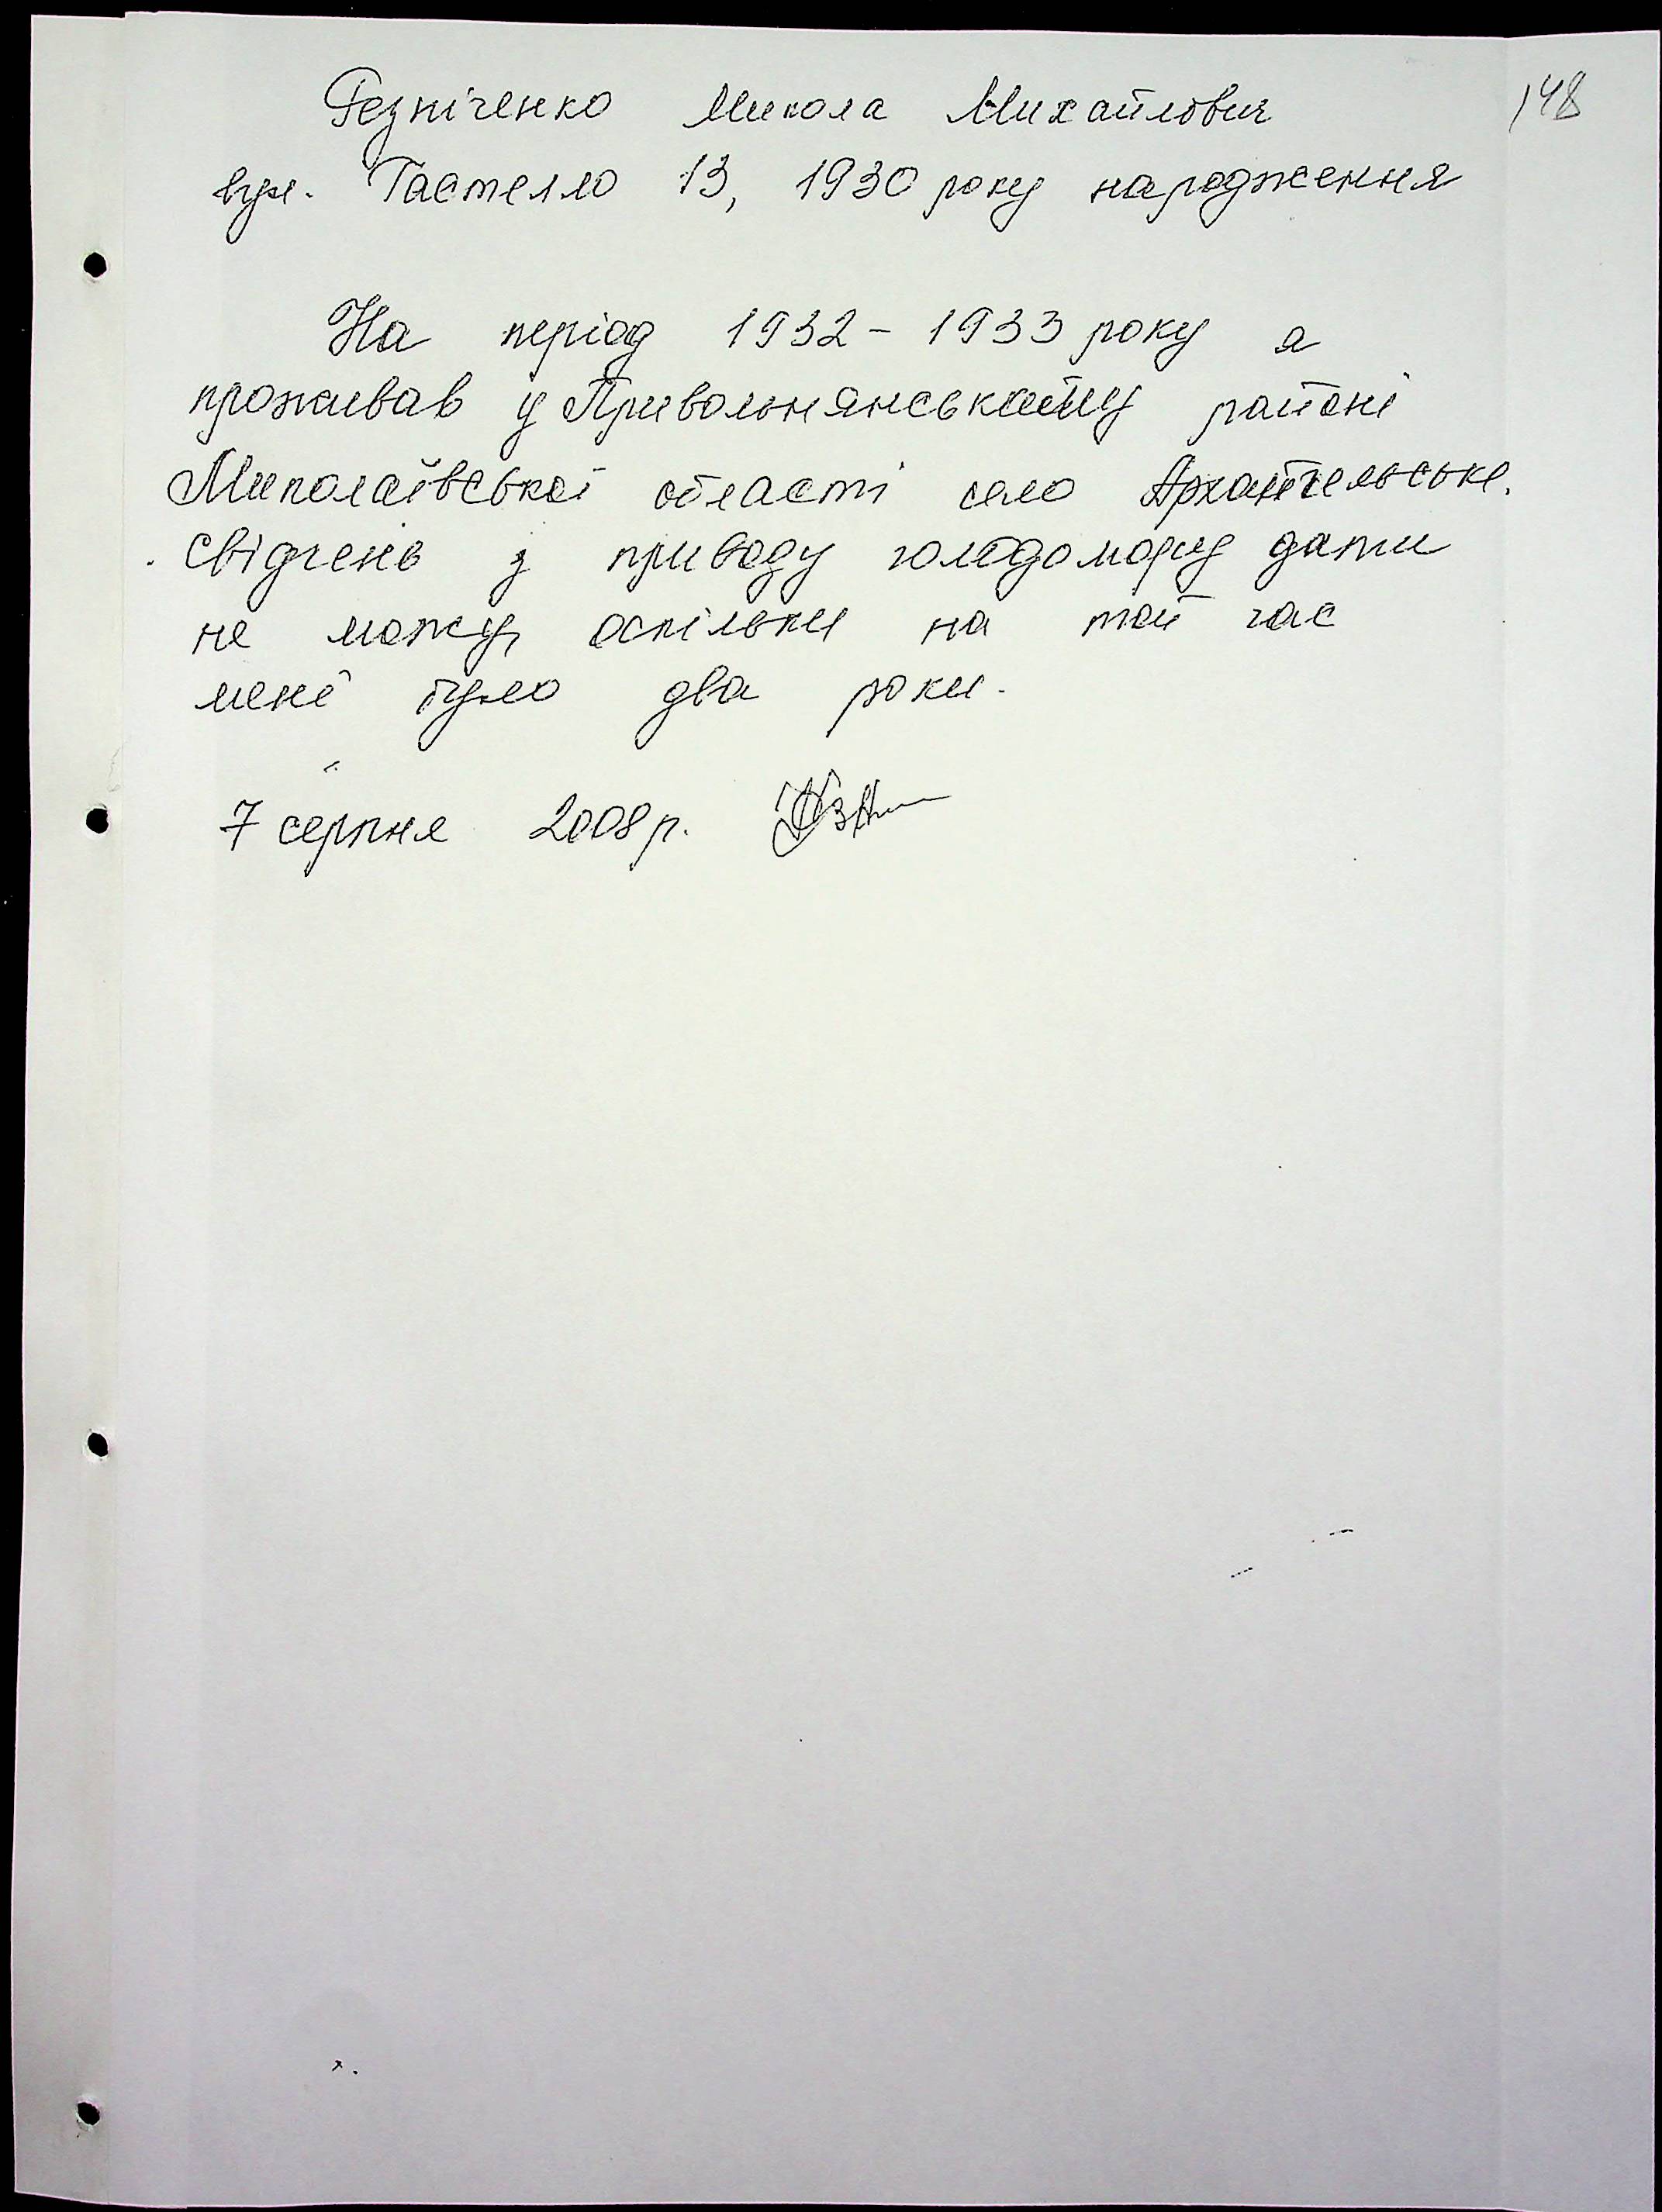 148
Резніченко Микола Михайлович
вул. Гастелло 13, 1930 року народження
На період 1932 - 1933 року я
проживав у Привольнянському районі
Миколаївської області село Архангельське.
Свідчень з приводу голодомору дати
не можу, оскільки на той час
мені було два роки.
7 серпня 2008 р.